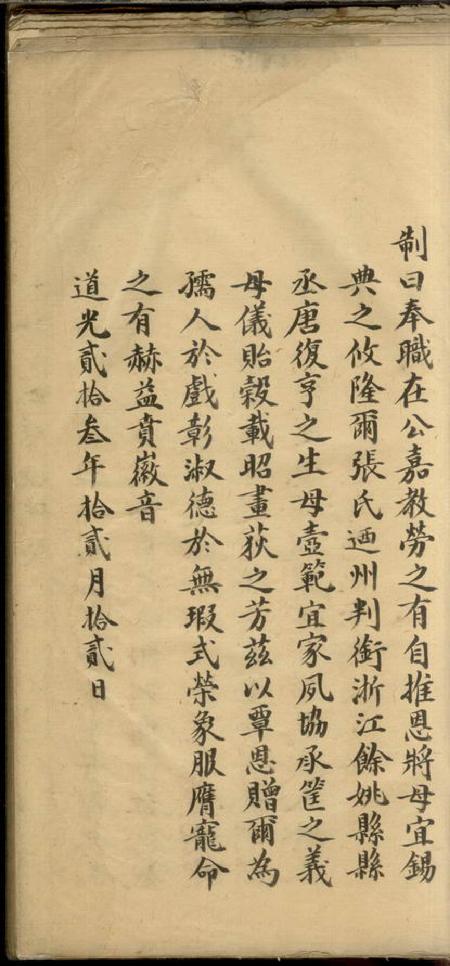 制曰奉職在公嘉教勞之有自推恩將母宜錫
典之攸隆爾張氏迺州判銜浙江餘姚縣縣
丞唐復亨之生母壼範宜家夙協承筐之義
母儀貽穀載昭畫荻之芳茲以覃恩贈爾為
孺人於戲彰淑德於無瑕式榮象服膺寵命
之有赫益賁徽音
道光貳拾叁年拾貳月拾貳日